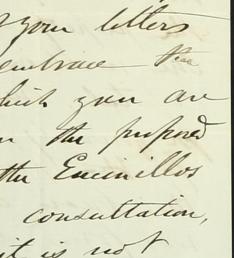 your letters
embrace the
which you are
the proposed
the Encinillos
consultation,
it is not